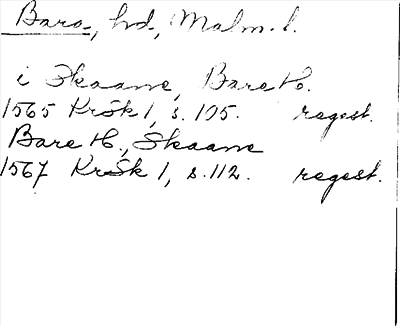 Bara-, hd-, Malm. l.
i Skaane, Bare H.
1565 KrSk 1, s. 105. regest.
Bare H., Skaane
1567 KrSk 1, s. 112. regest.